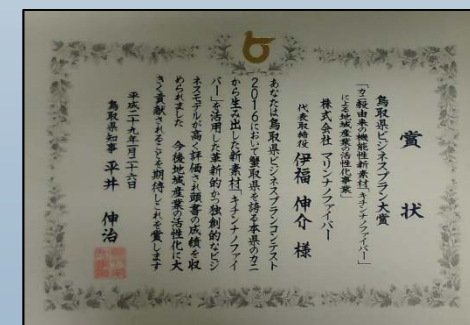 賞状
鳥取県ビジネスプラン大賞
「カニ殻由来の機能性新素材「キチンナノファイバー」
による地域産業の活性化事業」
株式会社 マリンナノファイバー
代表取締役 伊福 伸介 様
あなたは鳥取県ビジネスプランコンテスト
2016において蟹取県を誇る本県のカニ
から生み出した新素材「キチンナノファイ
バー」を活用した革新的かつ独創的なビジ
ネスモデルが高く評価され頭書の成績を収
められました 今後地域産業の活性化に大
きく貢献されることを期待しこれを賞します
平成二十九年一月二十六日
鳥取県知事 平井 伸治